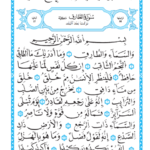 سُورَةُ الطَّارِقِ مَكِّيَّة
بِسْمِ اللَّهِ الرَّحْمَٰنِ الرَّحِيمِ
وَالسَّمَاءِ وَالطَّارِقِ وَمَا أَدْرَاكَ مَا الطَّارِقُ
النَّجْمُ الثَّاقِبُ إِنْ كُلُّ نَفْسٍ لَمَّا عَلَيْهَا
حَافِظٌ فَلْيَنْظُرِ الْإِنْسَانُ مِمَّ خُلِقَ خُلِقَ
مِنْ مَاءٍ دَافِقٍ يَخْرُجُ مِنْ بَيْنِ الصُّلْبِ
وَالتَّرَائِبِ إِنَّهُ عَلَىٰ رَجْعِهِ لَقَادِرٌ يَوْمَ
تُبْلَى السَّرَائِرُ فَمَا لَهُ مِنْ قُوَّةٍ وَلَا نَاصِرٍ
وَالسَّمَاءِ ذَاتِ الرَّجْعِ وَالْأَرْضِ ذَاتِ
الصَّدْعِ إِنَّهُ لَقَوْلٌ فَصْلٌ وَمَا هُوَ بِالْهَزْلِ